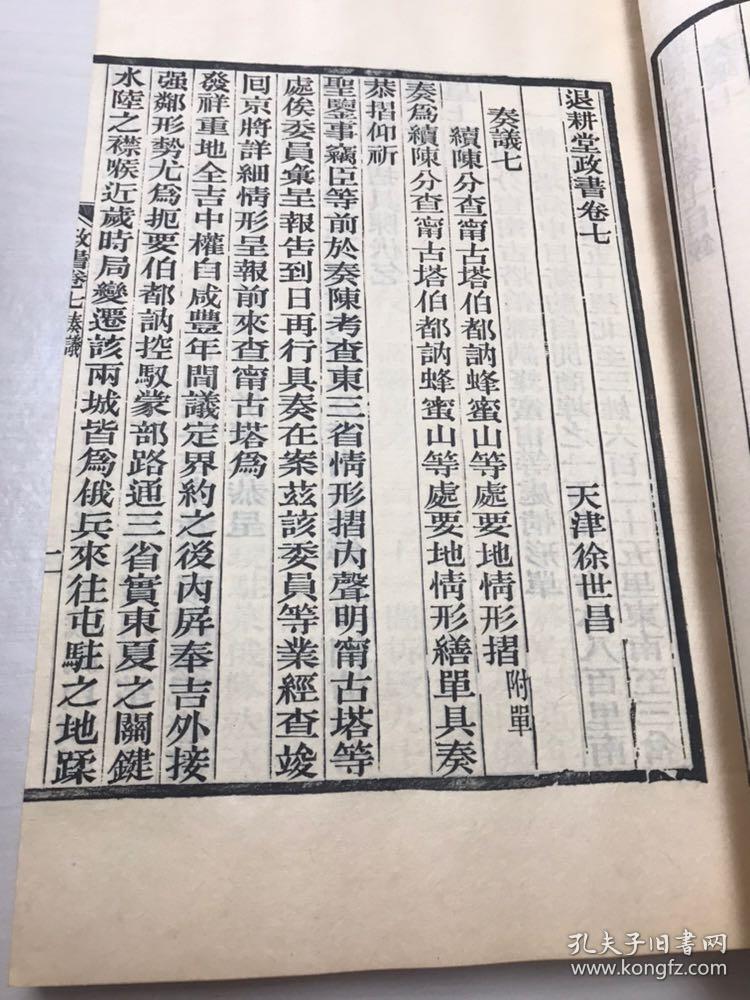 退耕堂政書卷七
天津徐世昌
奏議七
續陳分查甯古塔伯都訥蜂蜜山等處要地情形摺附單
奏爲續陳分查甯古塔伯都訥蜂蜜山等處要地情形繕單具奏
恭摺仰祈
聖鑒事竊臣等前於奏陳考查東三省情形摺內聲明甯古塔等
處俟委員彙呈報告到日再行具奏在案茲該委員等業經查竣
回京將詳細情形呈報前來查甯古塔爲
發祥重地全吉中權自咸豐年間議定界約之後內屏奉吉外接
强鄰形勢尤爲扼要伯都訥控馭蒙部路通三省實東夏之關鍵
水陸之襟喉近歲時局變遷該兩城皆爲俄兵來往屯駐之地蹂
政書卷七奏議
孔夫子旧书网
www.kongfz.com